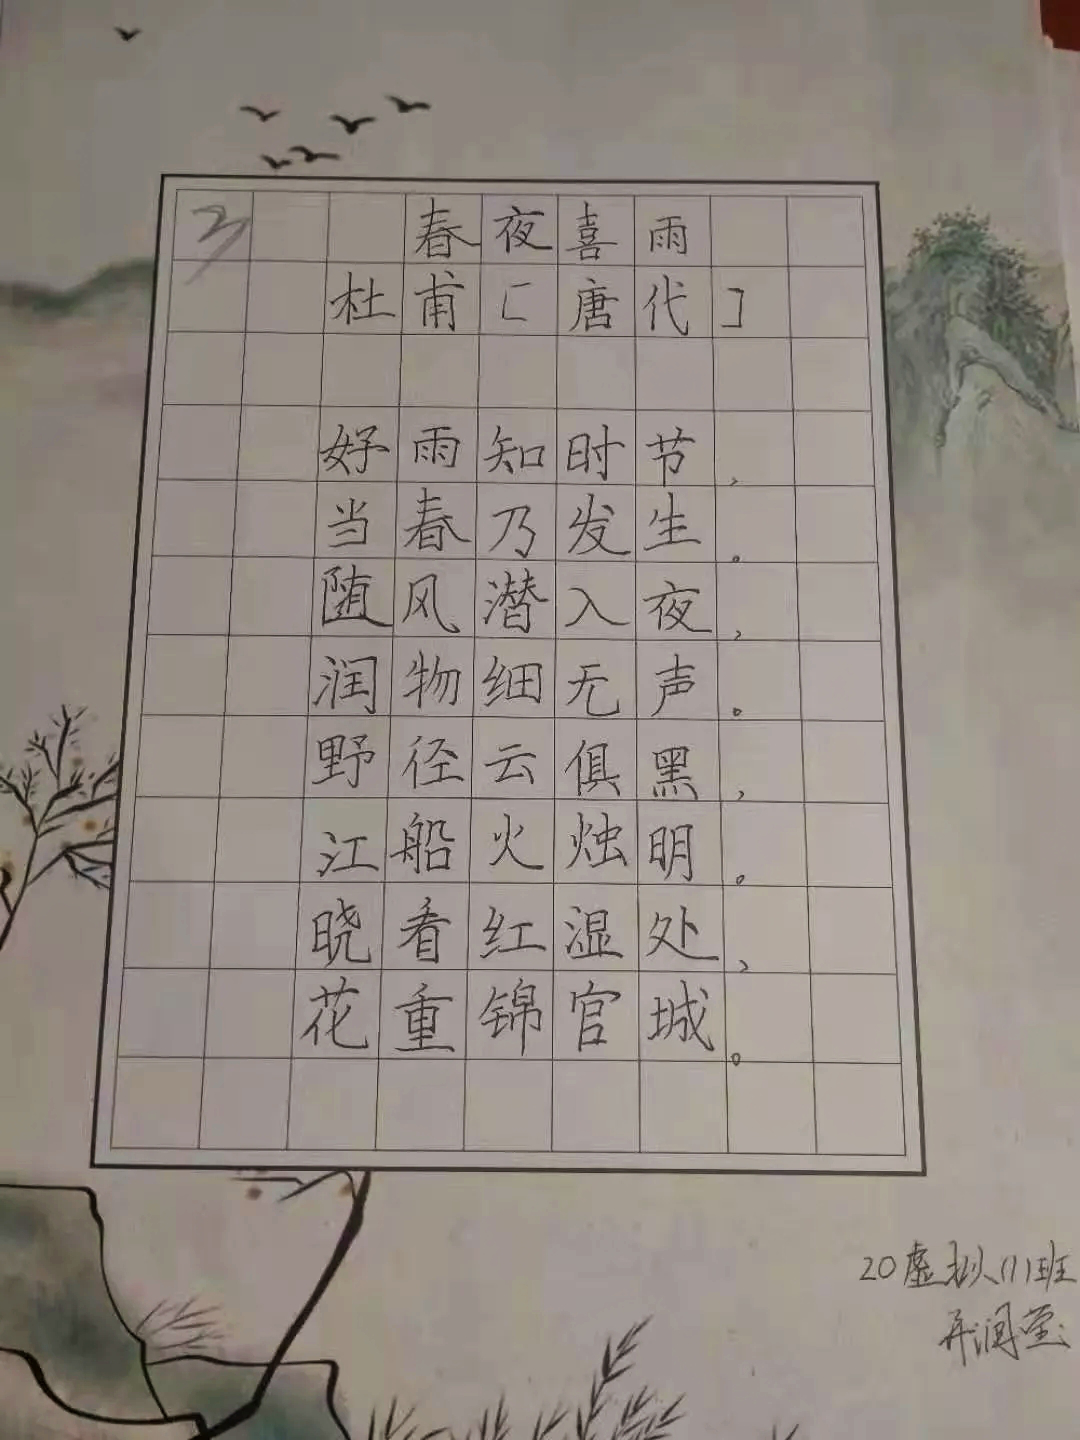 3
春夜喜雨
杜甫[唐代]
好雨知时节，
当春乃发生。
随风潜入夜，
润物细无声。
野径云俱黑，
江船火烛明。
晓看红湿处，
花重锦官城。
20虚拟(1)班